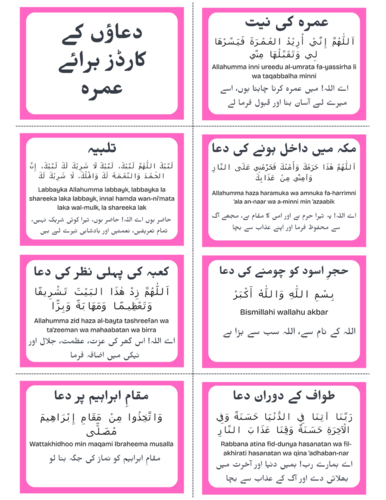 دعاؤں کے
کارڈز برائے
عمرہ
عمرہ کی نیت
اَللّٰهُمَّ إِنِّي أُرِيْدُ العُمْرَةَ فَيَسِّرْهَا
لِي وَتَقَبَّلْهَا مِنِّي
Allahumma inni ureedu al-umrata fa-yassirha li
wa taqabbalha minni
اے اللہ! میں عمرہ کرنا چاہتا ہوں، اسے
میرے لیے آسان بنا اور قبول فرما لے
تلبیہ
لَبَّيْكَ اللّٰهُمَّ لَبَّيْكَ، لَبَّيْكَ لَا شَرِيْكَ لَكَ لَبَّيْكَ، إِنَّ
الْحَمْدَ وَالنِّعْمَةَ لَكَ وَالْمُلْكَ، لَا شَرِيْكَ لَكَ
Labbayka Allahumma labbayk, labbayka la
shareeka laka labbayk, innal hamda wan-ni'mata
laka wal-mulk, la shareeka lak
حاضر ہوں اے اللہ! حاضر ہوں، تیرا کوئی شریک نہیں،
تمام تعریفیں، نعمتیں اور بادشاہی تیرے لیے ہیں
مکہ میں داخل ہونے کی دعا
اَللّٰهُمَّ هَذَا حَرَمُكَ وَأَمْنُكَ فَحَرِّمْنِي عَلَى النَّارِ
وَآمِنِّي مِنْ عَذَابِكَ
Allahumma haza haramuka wa amnuka fa-harrimni
'ala an-naar wa a-minni min 'azaabik
اے اللہ! یہ تیرا حرم ہے اور امن کا مقام ہے، مجھے آگ
سے محفوظ فرما اور اپنے عذاب سے بچا
کعبہ کی پہلی نظر کی دعا
اَللّٰهُمَّ زِدْ هٰذَا الْبَيْتَ تَشْرِيْفًا
وَتَعْظِيْمًا وَمَهَابَةً وَبِرًّا
Allahumma zid haza al-bayta tashreefan wa
ta'zeeman wa mahaabatan wa birra
اے اللہ! اس گھر کی عزت، عظمت، جلال اور
نیکی میں اضافہ فرما
حجرِ اسود کو چومنے کی دعا
بِسْمِ اللّٰهِ وَاللّٰهُ أَكْبَرُ
Bismillahi wallahu akbar
اللہ کے نام سے، اللہ سب سے بڑا ہے
مقامِ ابراہیم پر دعا
وَاتَّخِذُوا مِنْ مَقَامِ إِبْرَاهِيمَ
مُصَلًّى
Wattakhidhoo min maqami Ibraheema musalla
مقامِ ابراہیم کو نماز کی جگہ بنا لو
طواف کے دوران دعا
رَبَّنَا آتِنَا فِي الدُّنْيَا حَسَنَةً وَفِي
الْآخِرَةِ حَسَنَةً وَقِنَا عَذَابَ النَّارِ
Rabbana atina fid-dunya hasanatan wa fil-
akhirati hasanatan wa qina 'adhaban-nar
اے ہمارے رب! ہمیں دنیا اور آخرت میں
بھلائی دے اور آگ کے عذاب سے بچا